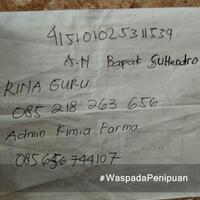 415101025311534
A.N Bapak Suhendro
RINA GURU
085 218 263 656
Admin Kimia Farma
085656744107
#WaspadaPenipuan